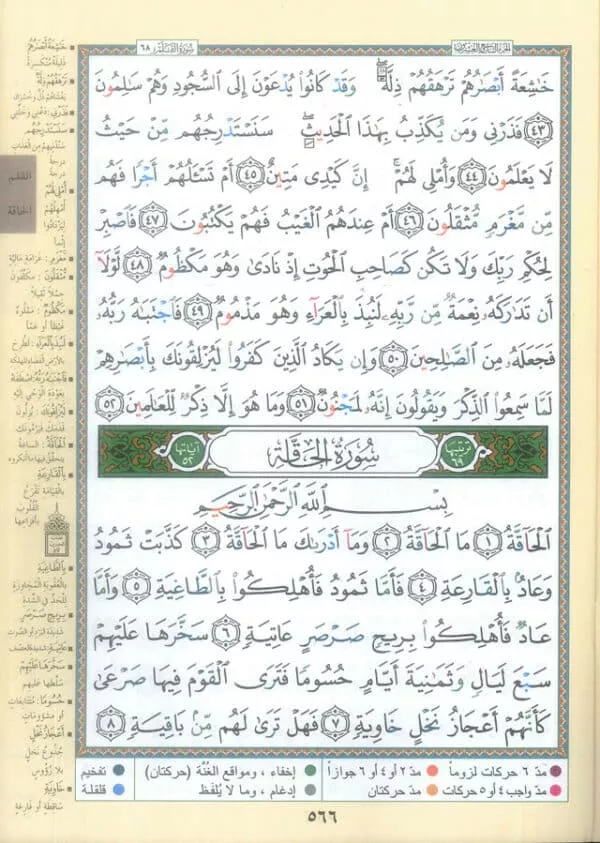 الجزء التاسع والعشرون
سُورَةُ القَلَم ٦٨
خَٰشِعَةً أَبْصَٰرُهُمْ تَرْهَقُهُمْ ذِلَّةٌ ۖ وَقَدْ كَانُوا۟ يُدْعَوْنَ إِلَى ٱلسُّجُودِ وَهُمْ سَٰلِمُونَ
٤٣ فَذَرْنِى وَمَن يُكَذِّبُ بِهَٰذَا ٱلْحَدِيثِ ۖ سَنَسْتَدْرِجُهُم مِّنْ حَيْثُ
لَا يَعْلَمُونَ ٤٤ وَأُمْلِى لَهُمْ ۚ إِنَّ كَيْدِى مَتِينٌ ٤٥ أَمْ تَسْـَٔلُهُمْ أَجْرًا فَهُم
مِّن مَّغْرَمٍ مُّثْقَلُونَ ٤٦ أَمْ عِندَهُمُ ٱلْغَيْبُ فَهُمْ يَكْتُبُونَ ٤٧ فَٱصْبِرْ
لِحُكْمِ رَبِّكَ وَلَا تَكُن كَصَاحِبِ ٱلْحُوتِ إِذْ نَادَىٰ وَهُوَ مَكْظُومٌ ٤٨ لَّوْلَآ
أَن تَدَٰرَكَهُۥ نِعْمَةٌ مِّن رَّبِّهِۦ لَنُبِذَ بِٱلْعَرَآءِ وَهُوَ مَذْمُومٌ ٤٩ فَٱجْتَبَٰهُ رَبُّهُۥ
فَجَعَلَهُۥ مِنَ ٱلصَّٰلِحِينَ ٥٠ وَإِن يَكَادُ ٱلَّذِينَ كَفَرُوا۟ لَيُزْلِقُونَكَ بِأَبْصَٰرِهِمْ
لَمَّا سَمِعُوا۟ ٱلذِّكْرَ وَيَقُولُونَ إِنَّهُۥ لَمَجْنُونٌ ٥١ وَمَا هُوَ إِلَّا ذِكْرٌ لِّلْعَٰلَمِينَ ٥٢
ترتيبها ٦٩ سُورَةُ الحَاقَّة آياتها ٥٢
بِسْمِ ٱللَّهِ ٱلرَّحْمَٰنِ ٱلرَّحِيمِ
ٱلْحَآقَّةُ ١ مَا ٱلْحَآقَّةُ ٢ وَمَآ أَدْرَىٰكَ مَا ٱلْحَآقَّةُ ٣ كَذَّبَتْ ثَمُودُ
وَعَادٌۢ بِٱلْقَارِعَةِ ٤ فَأَمَّا ثَمُودُ فَأُهْلِكُوا۟ بِٱلطَّاغِيَةِ ٥ وَأَمَّا
عَادٌ فَأُهْلِكُوا۟ بِرِيحٍ صَرْصَرٍ عَاتِيَةٍ ٦ سَخَّرَهَا عَلَيْهِمْ
سَبْعَ لَيَالٍ وَثَمَٰنِيَةَ أَيَّامٍ حُسُومًا فَتَرَى ٱلْقَوْمَ فِيهَا صَرْعَىٰ
كَأَنَّهُمْ أَعْجَازُ نَخْلٍ خَاوِيَةٍ ٧ فَهَلْ تَرَىٰ لَهُم مِّنۢ بَاقِيَةٍ ٨
مدّ ٦ حركات لزوماً مدّ ٢ أو ٤ أو ٦ جوازاً إخفاء، ومواقع الغُنَّة (حركتان) تفخيم
مدّ واجب ٤ أو ٥ حركات مدّ حركتان إدغام، وما لا يُلفَظ قلقلة
٥٦٦
خَٰشِعَةً أَبْصَٰرُهُمْ
ذليلة منكسرة
تَرْهَقُهُمْ ذِلَّةٌ
سَنَسْتَدْرِجُهُم
القلم
الحاقة
أُمْلِى لَهُمْ
أمهلهم
إثما
مَغْرَمٍ: غرامة مالية
مُثْقَلُونَ: مكلفون
حملاً ثقيلاً
مَكْظُومٌ: مملوء
غيظاً أو غمّاً
ٱلْحَآقَّةُ: الساعة
بِٱلْقَارِعَةِ
بالقيامة تقرع
القلوب
بأفزاعها
بِٱلطَّاغِيَةِ
بِرِيحٍ صَرْصَرٍ
سَخَّرَهَا عَلَيْهِمْ
سلطها عليهم
حُسُومًا: متتابعات
أو مشؤومات
أَعْجَازُ نَخْلٍ
جذوع نخل
بلا رؤوس
خَاوِيَةٍ
ساقطة أو فارغة